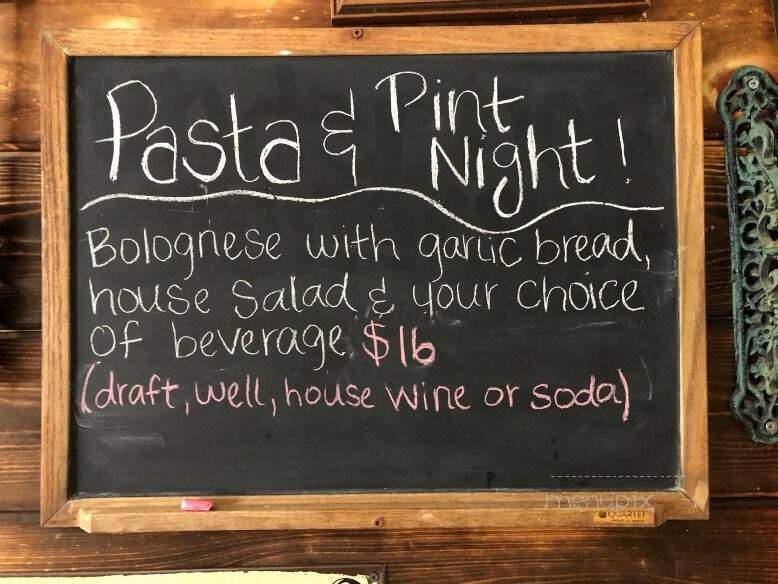 Pasta & Pint Night!
Bolognese with garlic bread,
house salad & your choice
of beverage $16
(draft, well, house wine or soda)
menupix
QUARTET